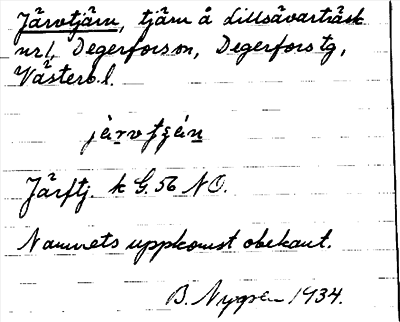 Järvtjärn, tjärn å Lillsävarträsk
nr 1, Degerfors sn, Degerfors tg,
Västerb. l.
järvtʃän
Järftj. k G. 56 NO.
Namnets uppkomst obekant.
B. Nygren 1934.